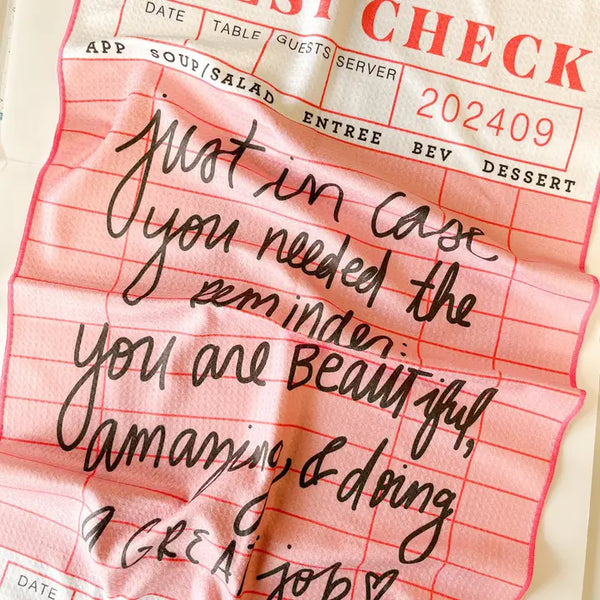 CHECK
DATE TABLE GUESTS SERVER
202409
APP SOUP/SALAD ENTREE BEV DESSERT
just in case
you needed the
reminder:
you are BEAUTiful,
amazing, & doing
a GREAT job ♡
DATE